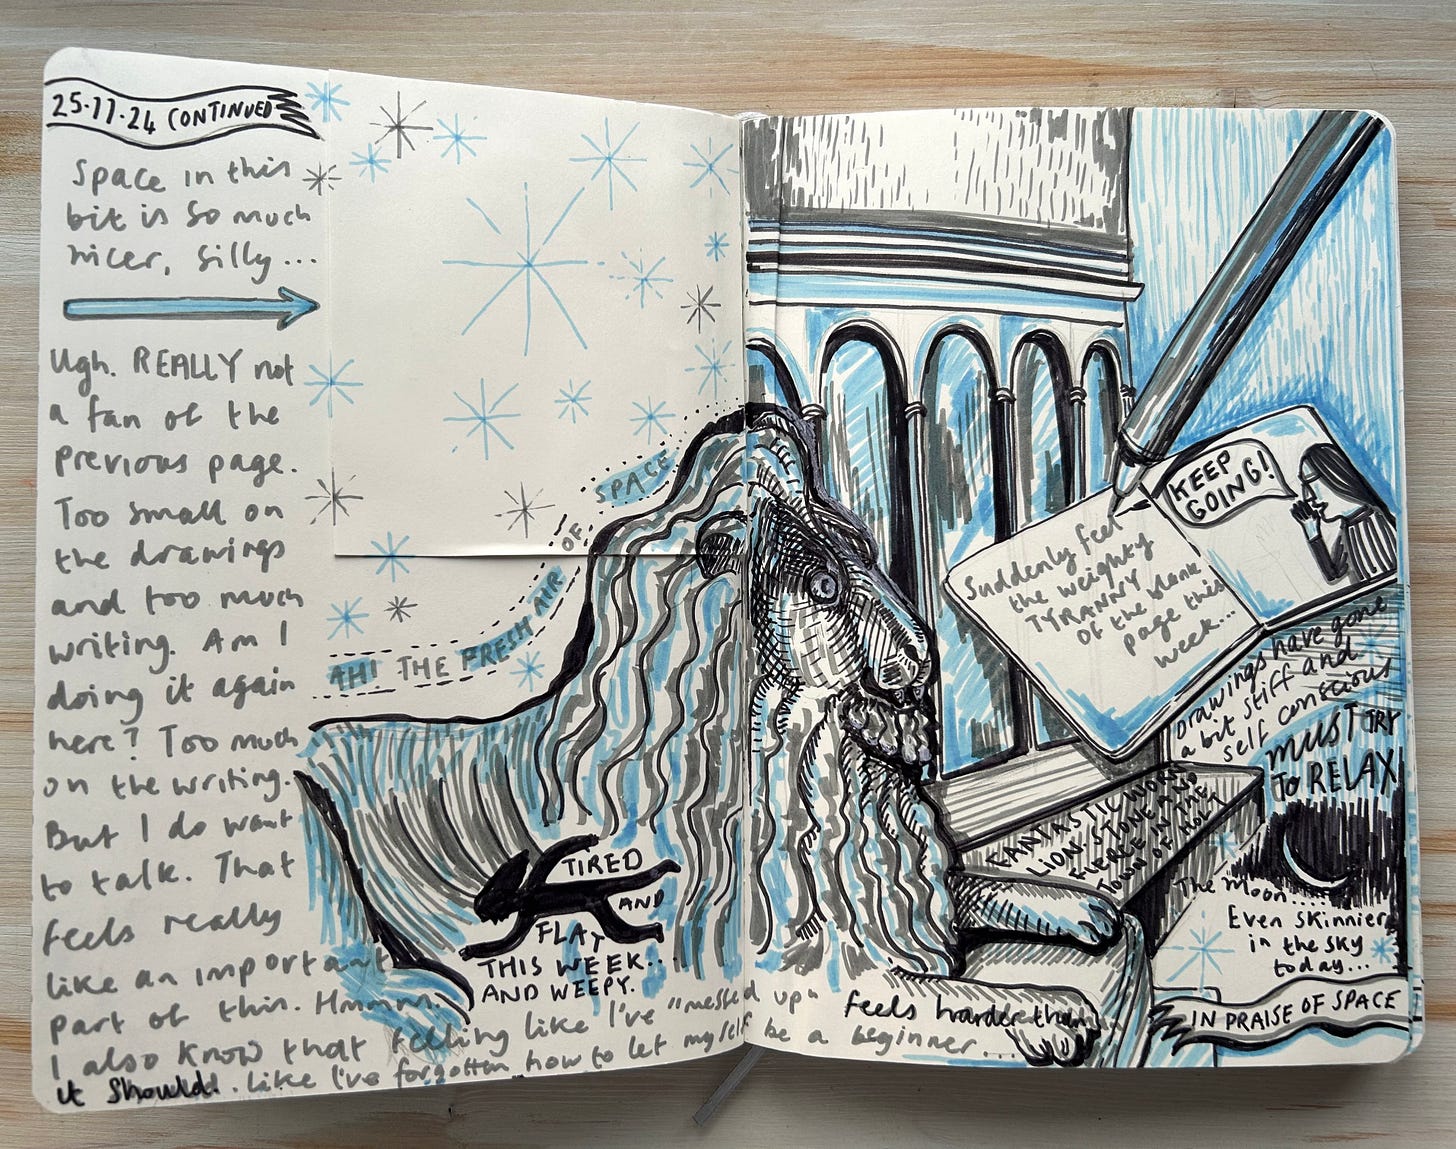 25·11·24 CONTINUED
Space in this
bit is so much
nicer, silly...
Ugh. REALLY not
a fan of the
previous page.
Too small on
the drawings
and too much
writing. Am I
doing it again
here? Too much
on the writing.
But I do want
to talk. That
feels really
like an important
part of this. Hmmm.
I also know that feeling like I've "messed up" feels harder than
it should. Like I've forgotten how to let myself be a beginner...
AH! THE FRESH AIR OF SPACE
TIRED
AND
FLAT
THIS WEEK...
AND WEEPY.
Suddenly feel
the weighty
TYRANNY
of the blank
page this
week...
KEEP
GOING!
Drawings have gone
a bit stiff and
self conscious
MUST TRY
TO RELAX!
FANTASTIC WORN
LION. STONE AND
FIERCE IN THE
TOWN OF HOLT
The moon....
Even skinnier
in the sky
today...
IN PRAISE OF SPACE